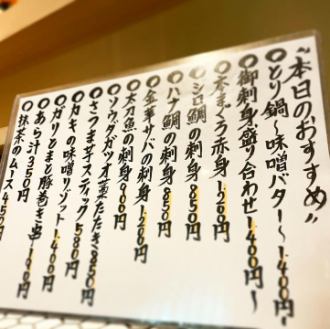 "本日のおすすめ"
○とり鍋〜味噌バター〜1400円〜
○御刺身盛り合わせ1400円〜
○本まぐろ赤身1200円
○シロ鯛の刺身850円
○ハナ鯛の刺身850円
○金華サバの刺身1200円
○太刀魚の刺身900円
○ソウダガツオ藁たたき850円
○さつま芋スティック580円
○カキの味噌リゾット1400円
○ガリとまと豚巻き串100円
○あら汁350円
○抹茶のムース450円